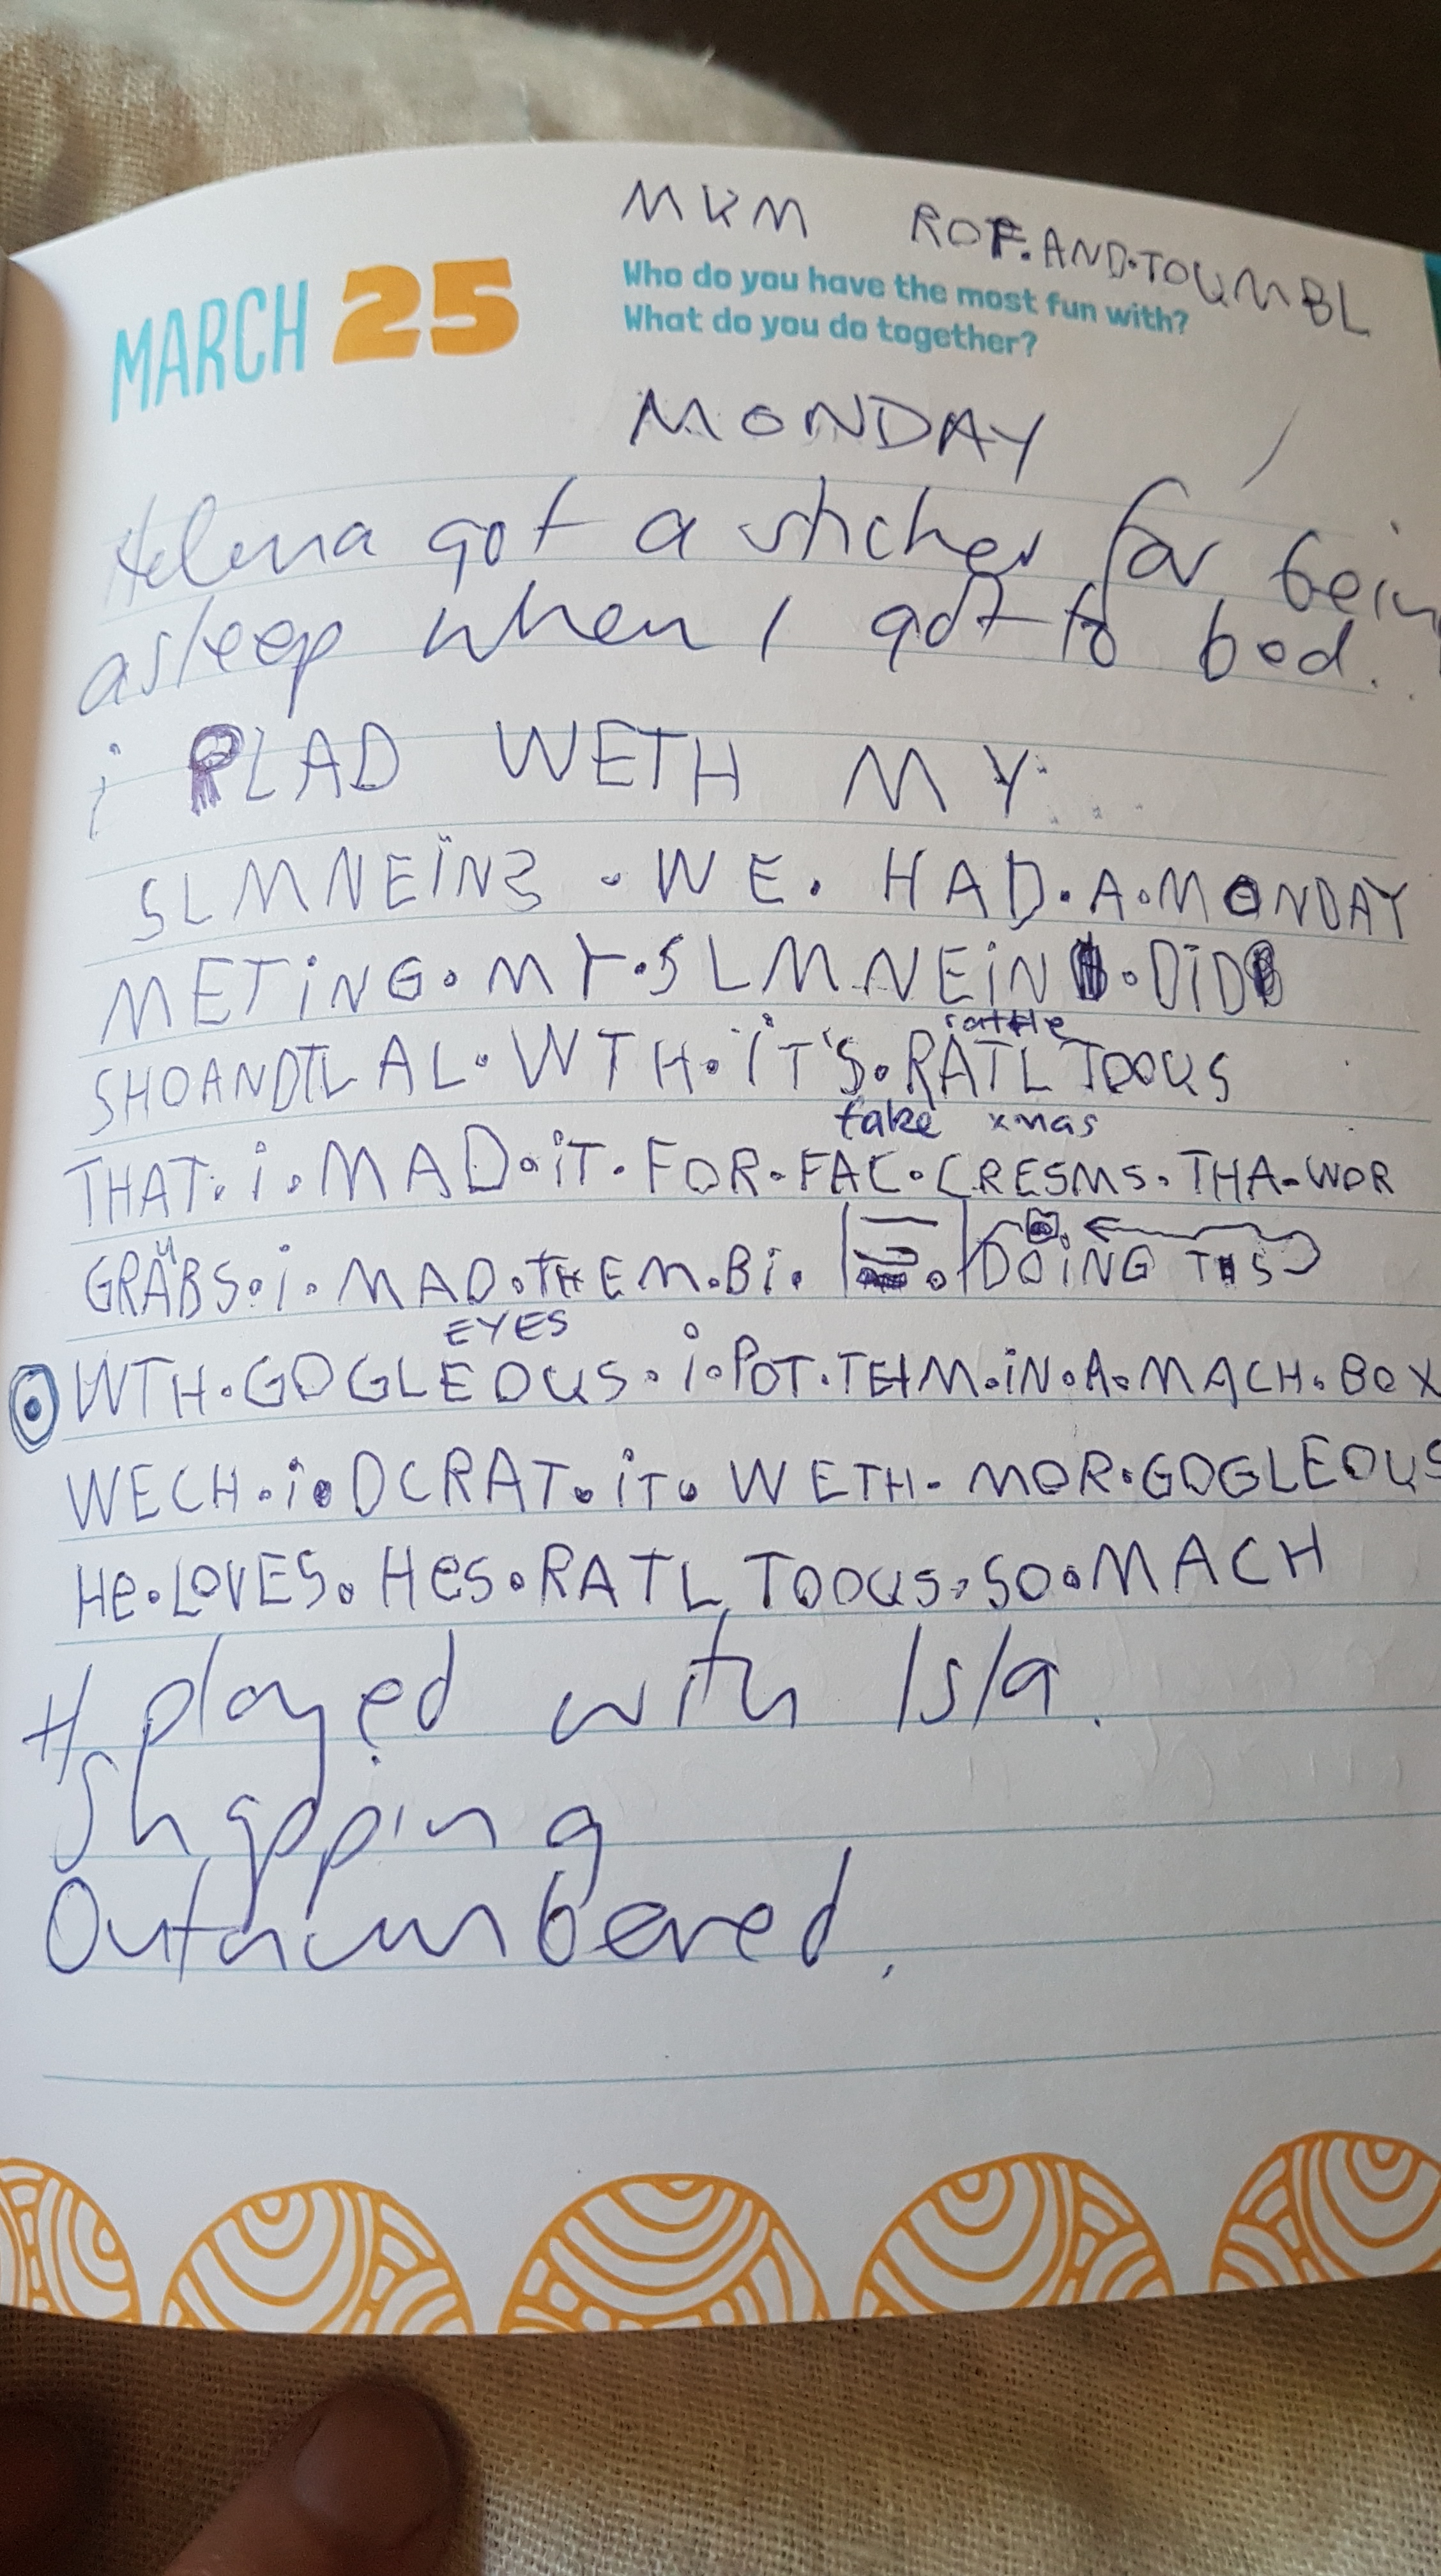 MUM ROF.AND.TOUMBL
MARCH 25
Who do you have the most fun with?
What do you do together?
MONDAY
Helena got a sticker for bein
asleep when I got to bed.
i PLAD WETH MY
SLMNEINS . WE. HAD.A.MONDAY
METiNG.MY.SLMNEiN.DiD
rattle
SHOANDTL AL.WTH.iT'S.RATL TOOUS
fake xmas
THAT.i.MAD.iT.FOR.FAC.CRESMS.THA.WOR
GRABS.i.MAD.THEM.Bi. DOiNG THS
EYES
WTH.GOGLEOUS.i.POT.TEHM.iN.A.MACH.BOX
WECH.i.DCRAT.iT.WETH.MOR.GOGLEOUS
He.LOVES.Hes.RATL TOOUS.SO.MACH
H played with Isla.
Shopping
Outnumbered.